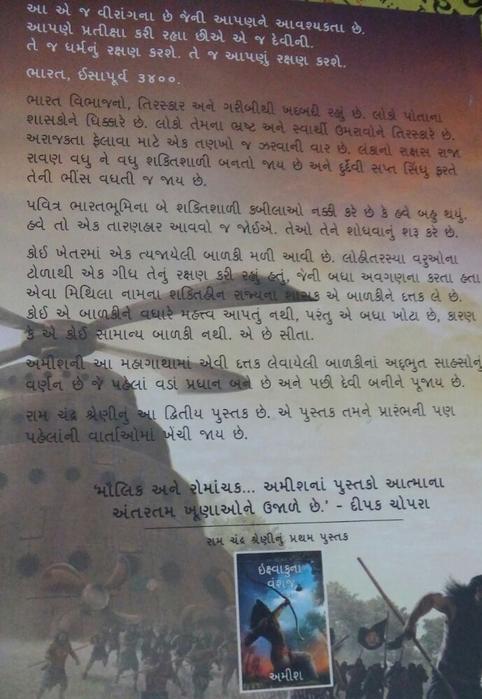 આ એ જ વીરાંગના છે જેની આપણને આવશ્યકતા છે.
આપણે પ્રતીક્ષા કરી રહ્યા છીએ એ જ દેવીની.
તે જ ધર્મનું રક્ષણ કરશે. તે જ આપણું રક્ષણ કરશે.
ભારત, ઈસાપૂર્વ ૩૪૦૦.
ભારત વિભાજનો, તિરસ્કાર અને ગરીબીથી ખદબદી રહ્યું છે. લોકો પોતાના
શાસકોને ધિક્કારે છે. લોકો તેમના ભ્રષ્ટ અને સ્વાર્થી ઉમરાવોને તિરસ્કારે છે.
અરાજકતા ફેલાવા માટે એક તણખો જ ઝરવાની વાર છે. લંકાનો રાક્ષસ રાજા
રાવણ વધુ ને વધુ શક્તિશાળી બનતો જાય છે અને દુર્દૈવી સપ્ત સિંધુ ફરતે
તેની ભીંસ વધતી જ જાય છે.
પવિત્ર ભારતભૂમિના બે શક્તિશાળી કબીલાઓ નક્કી કરે છે કે હવે બહુ થયું.
હવે તો એક તારણહાર આવવો જ જોઈએ. તેઓ તેને શોધવાનું શરૂ કરે છે.
કોઈ ખેતરમાં એક ત્યજાયેલી બાળકી મળી આવી છે. લોહીતરસ્યા વરુઓના
ટોળાથી એક ગીધ તેનું રક્ષણ કરી રહ્યું હતું, જેની બધા અવગણના કરતા હતા
એવા મિથિલા નામના શક્તિહીન રાજ્યના શાસક એ બાળકીને દત્તક લે છે.
કોઈ એ બાળકીને વધારે મહત્ત્વ આપતું નથી, પરંતુ એ બધા ખોટા છે, કારણ
કે એ કોઈ સામાન્ય બાળકી નથી. એ છે સીતા.
અમીશની આ મહાગાથામાં એવી દત્તક લેવાયેલી બાળકીનાં અદ્ભુત સાહસોનું
વર્ણન છે જે પહેલાં વડાં પ્રધાન બને છે અને પછી દેવી બનીને પૂજાય છે.
રામ ચંદ્ર શ્રેણીનું આ દ્વિતીય પુસ્તક છે. એ પુસ્તક તમને પ્રારંભની પણ
પહેલાંની વાર્તાઓમાં ખેંચી જાય છે.
'મૌલિક અને રોમાંચક... અમીશનાં પુસ્તકો આત્માના
અંતરતમ ખૂણાઓને ઉજાળે છે.' - દીપક ચોપરા
રામ ચંદ્ર શ્રેણીનું પ્રથમ પુસ્તક
ઈક્ષ્વાકુના
વંશજ
અમીશ